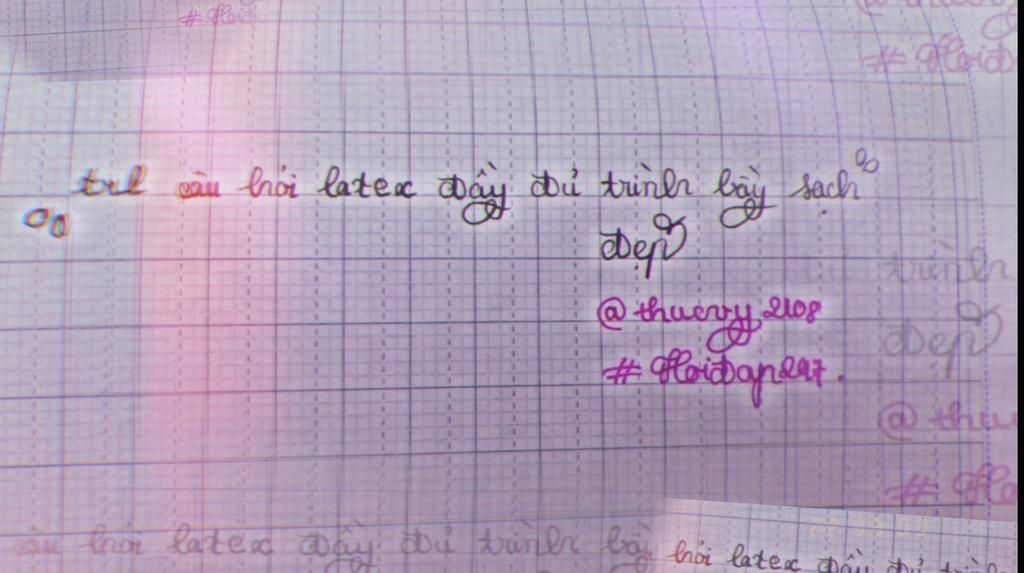 # Hoid
# HoiĐ
trl câu hỏi latex đầy đủ trình bày sạch
đẹp
@thuevy2108
# HoiĐap247.
trình
đẹp
@ thu
# Ho
câu hỏi latex đầy đủ trình bày
hỏi latex đầy đủ trình